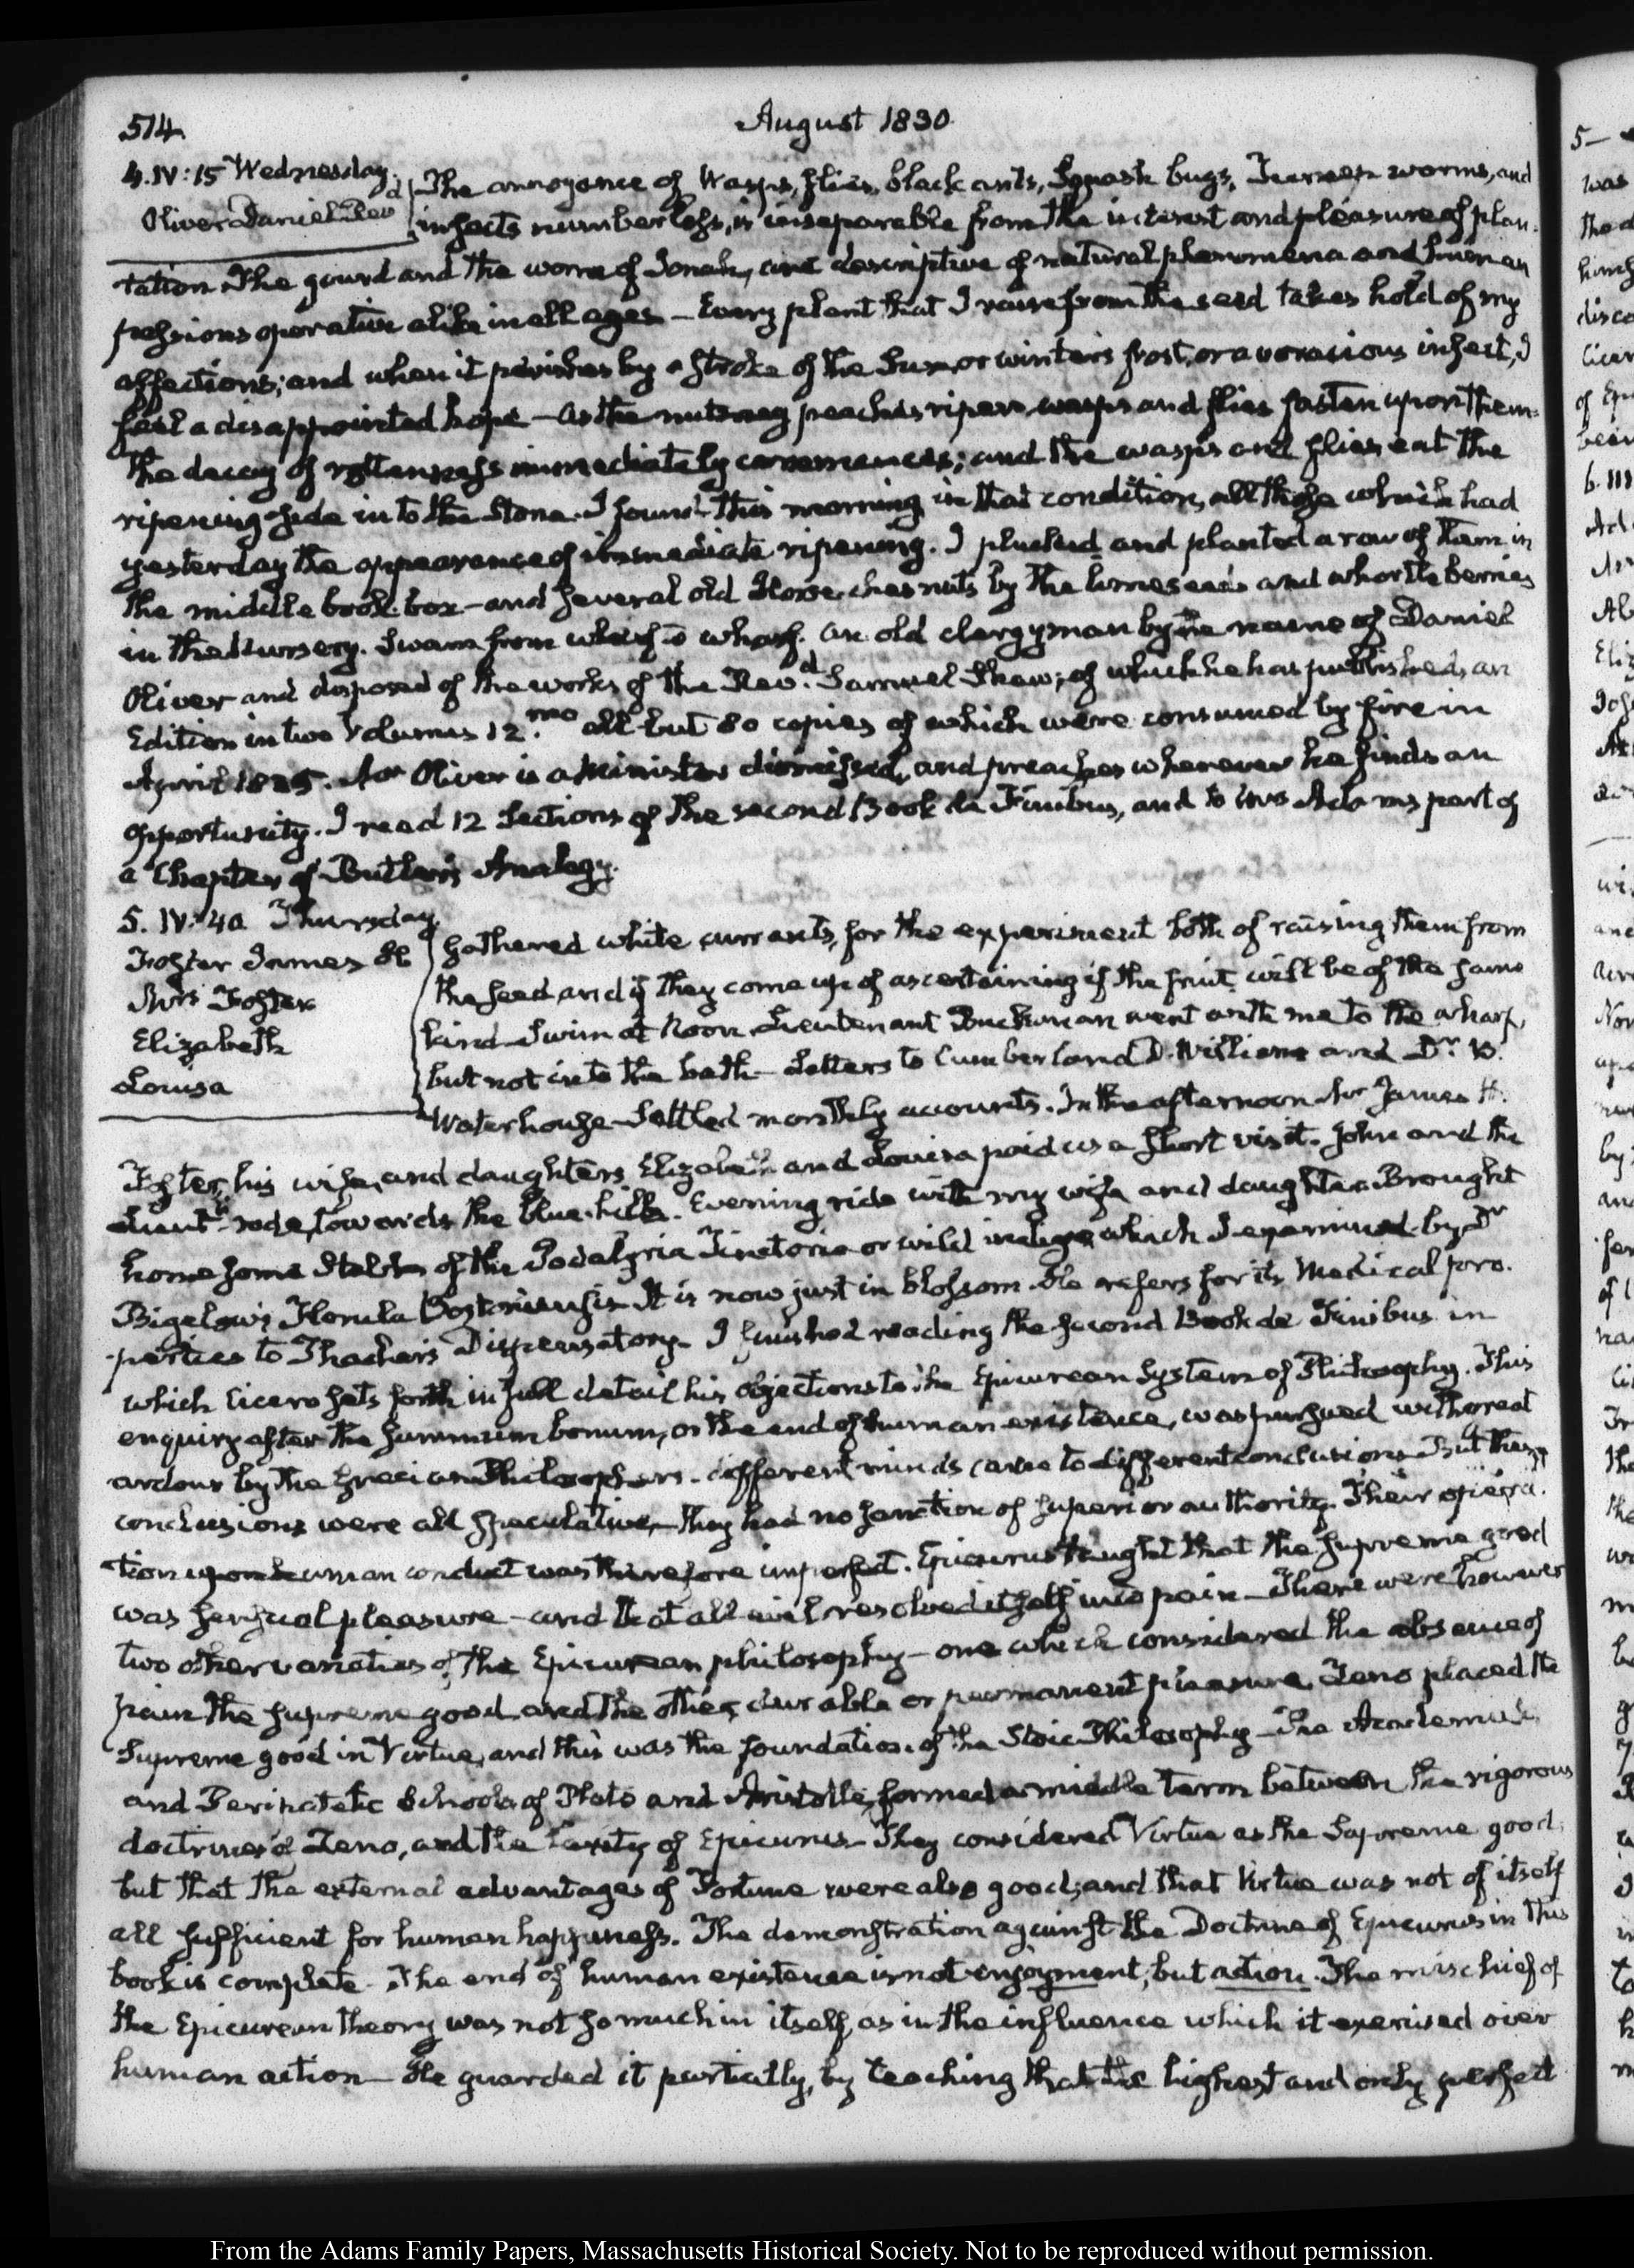 514.
August 1830.
4. IV:15 Wednesday.
Oliver Daniel Revd
The annoyance of Wasps, flies, black ants, Squash bugs, worms, and
insects numberless, is inseparable from the interest and pleasure of plan-
tation. The gourd and the worm of Jonah, are descriptive of natural phenomena and human
passions operative alike in all ages — Every plant that I raise from the seed takes hold of my
affections; and when it perishes by a stroke of the Sun, or winter's frost, or a voracious insect, I
feel a disappointed hope — As the nutmeg peaches ripen, wasps and flies fasten upon them.
The decay of rottenness immediately commences; and the wasps and flies eat the
ripening side into the Stone. I found this morning in that condition, all those which had
yesterday the appearance of immediate ripening. I plucked and planted a row of them in
the middle book-box — and several old Horse chesnuts by the limeseeds and whortleberries
in the Nursery. Swam from wharf to wharf. An old clergyman by the name of Daniel
Oliver and disposed of the works of the Revd. Samuel Shaw; of which he has published, an
Edition in two Volumes 12.mo all but 80 copies of which were consumed by fire in
April 1825. Mr Oliver is a Minister dismissed, and preaches wherever he finds an
opportunity. I read 12 Sections of the second Book de Finibus, and to Mrs Adams part of
a Chapter of Butler's Analogy.
5. IV:40 Thursday.
Foster James H
Mrs Foster
Elizabeth
Louisa
Gathered white currants, for the experiment both of raising them from
the seed and if they come up of ascertaining if the fruit will be of the same
kind — Swim at Noon. Lieutenant Buchanan went with me to the wharf,
but not into the bath — Letters to Cumberland D. Williams and Dr. B.
Waterhouse — Settled monthly accounts. In the afternoon Mr James H.
Foster, his wife, and daughters Elizabeth and Louisa paid us a short visit. John and the
Lieut. rode towards the blue-hills. Evening ride with my wife and daughter. Brought
home some Stalks of the Podalyria Tinctoria or wild indigo, which I examined by Dr
Bigelow's Florula Bostoniensis. It is now just in blossom. He refers for its Medical pro-
perties to Thacher's Dispensatory — I finished reading the second Book de Finibus in
which Cicero sets forth in full detail his objections to the Epicurean System of Philosophy. This
enquiry after the summum bonum, or the end of human existence, was pursued with great
ardour by the Grecian Philosophers — different minds came to different conclusions — But these
conclusions were all speculative — they had no sanction of superior authority. Their opera-
tion upon human conduct was therefore imperfect. Epicurus taught that the supreme good
was sensual pleasure — and that all evil resolved itself into pain — There were however
two other varieties of the Epicurean philosophy — one which considered the absence of
pain the supreme good and the other, durable or permanent pleasure. Zeno placed the
Supreme good in Virtue, and this was the foundation of the Stoic Philosophy — The Academic
and Peripatetic Schools of Plato and Aristotle, formed a middle term between the rigorous
doctrines of Zeno, and the laxity of Epicurus — They considered Virtue as the Supreme good,
but that the external advantages of Fortune were also good; and that Virtue was not of itself
all sufficient for human happiness. The demonstration against the Doctrine of Epicurus in this
book is complete. The end of human existence is not enjoyment, but action. The mischief of
the Epicurean theory was not so much in itself, as in the influence which it exercised over
human action — He guarded it partially, by teaching that the highest and only perfect
From the Adams Family Papers, Massachusetts Historical Society. Not to be reproduced without permission.